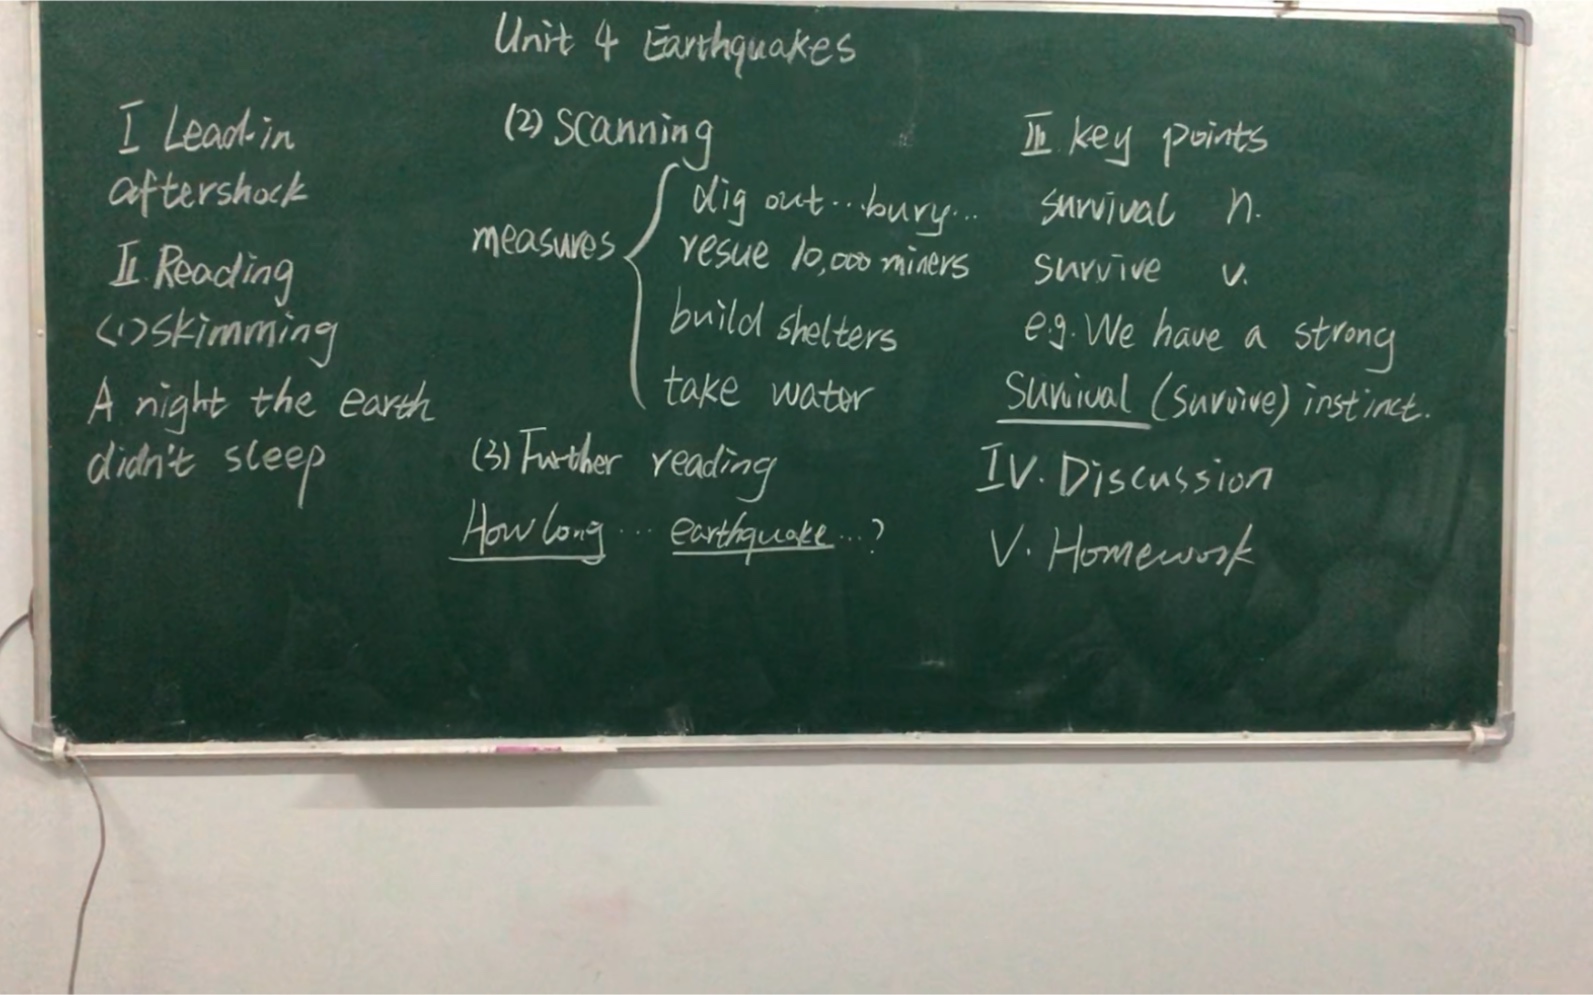 Unit 4 Earthquakes
I Lead-in
aftershock
II. Reading
(1) skimming
A night the earth
didn't sleep
(2) scanning
measures
dig out...bury...
resue 10,000 miners
build shelters
take water
(3) Further reading
How long ... earthquake...?
III key points
survival n.
survive v.
e.g. We have a strong
survival (survive) instinct.
IV. Discussion
V. Homework